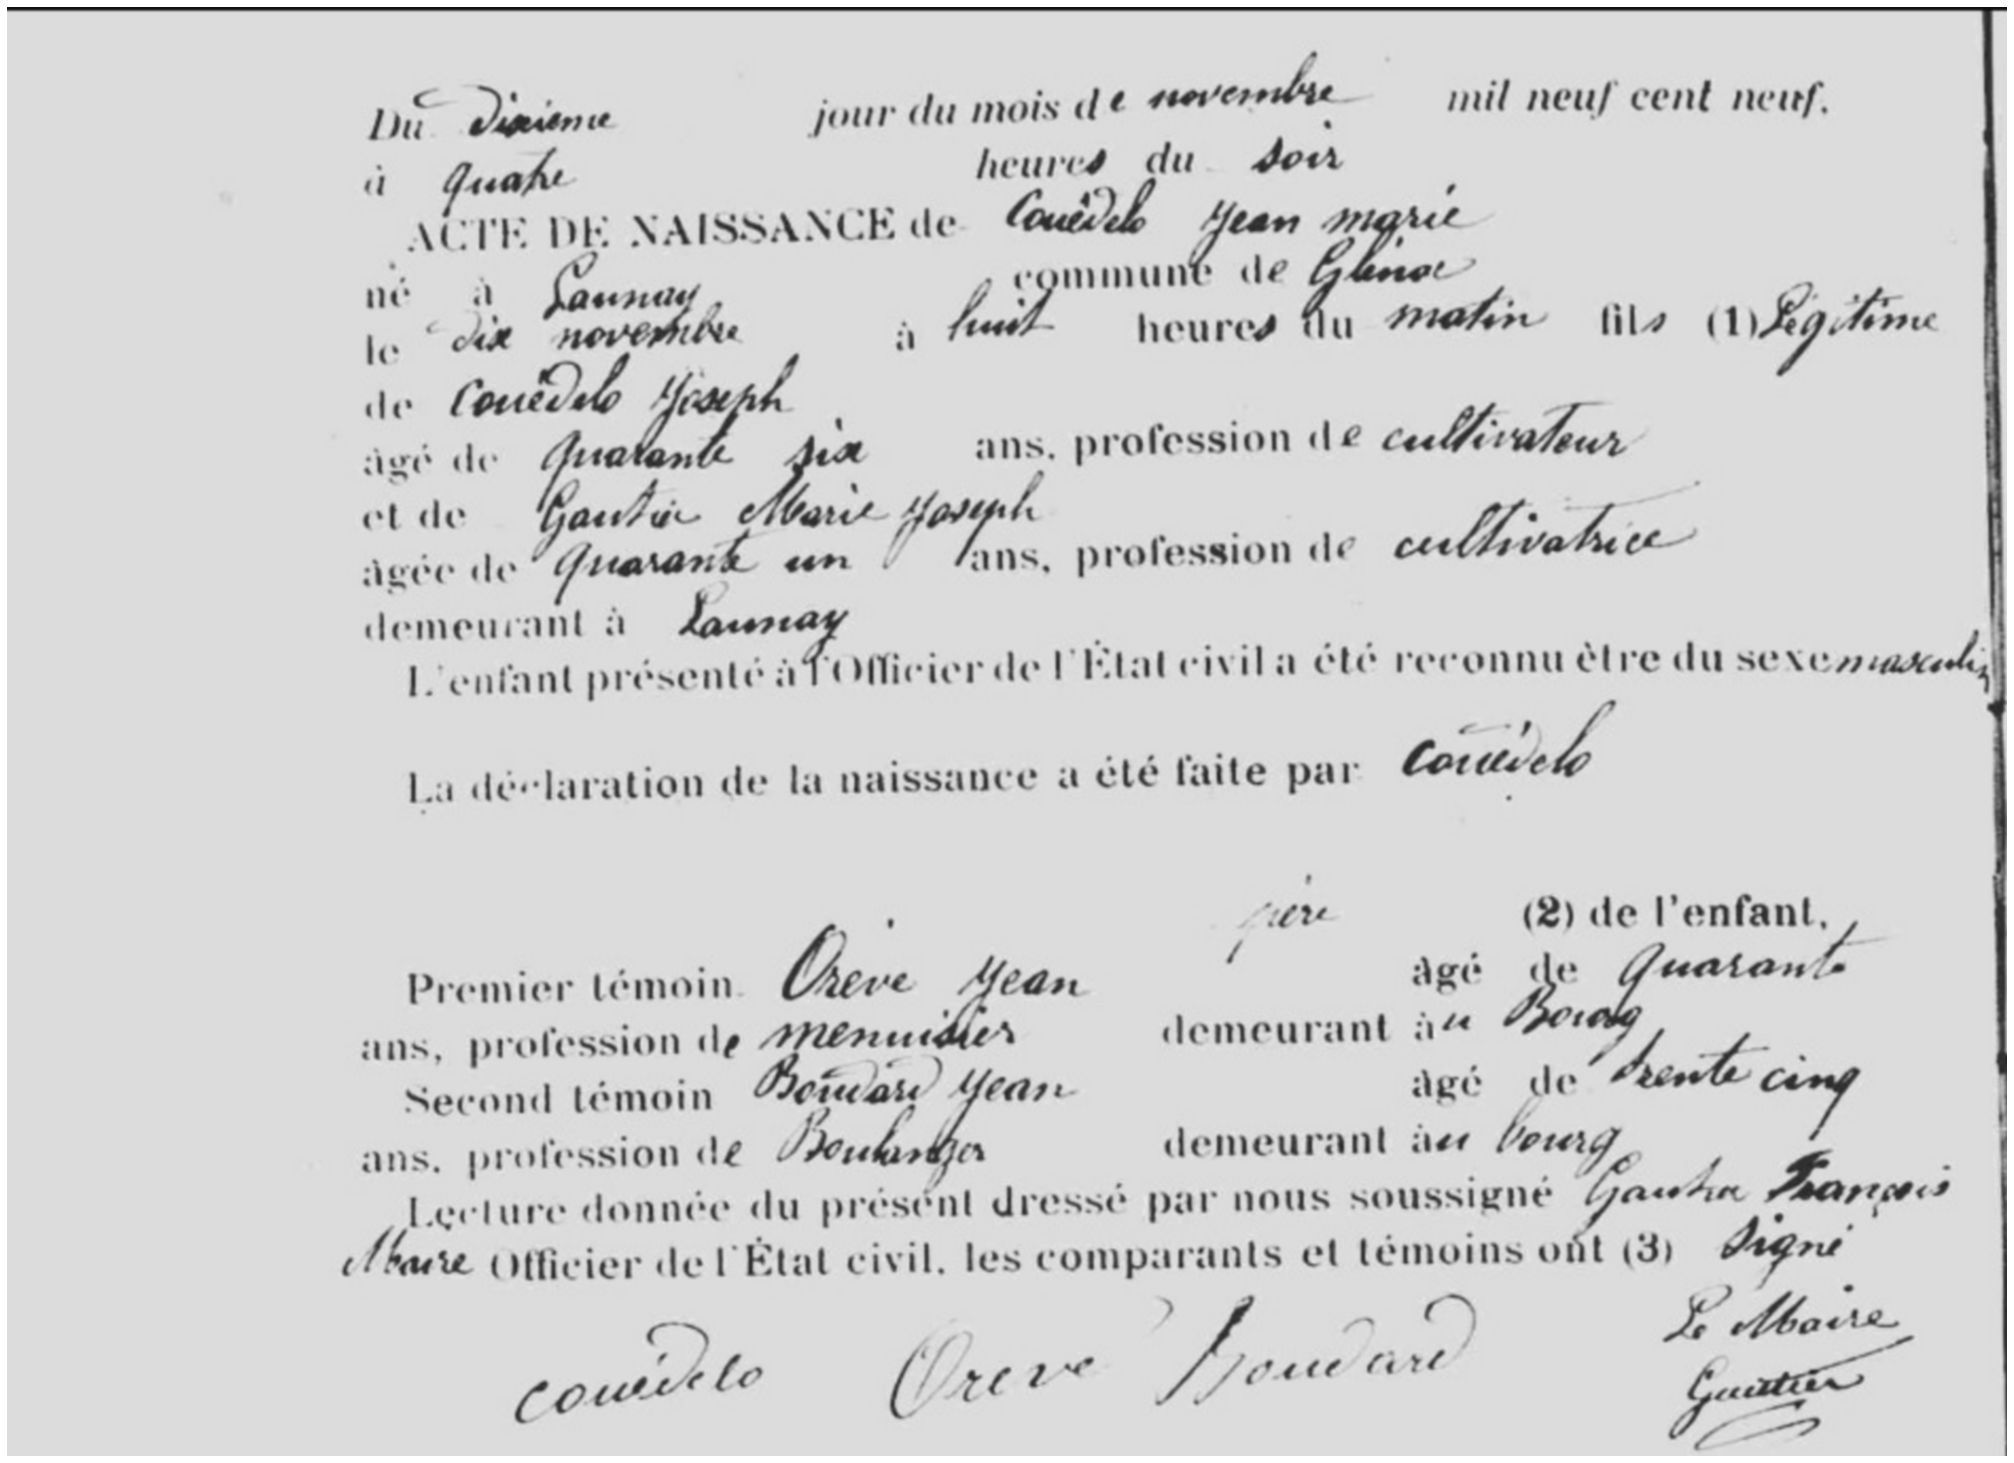 Du dixième jour du mois de novembre mil neuf cent neuf,
à quatre heures du soir
ACTE DE NAISSANCE de Couëdelo Jean marie
né à Launay commune de Glénac
le dix novembre à huit heures du matin fils (1) Légitime
de Couëdelo Joseph
âgé de quarante six ans, profession de cultivateur
et de Gautier Marie Joseph
âgée de quarante un ans, profession de cultivatrice
demeurant à Launay
L'enfant présenté à l'Officier de l'État civil a été reconnu être du sexe masculin
La déclaration de la naissance a été faite par Couëdelo
père (2) de l'enfant,
Premier témoin Oreve Jean âgé de quarante
ans, profession de menuisier demeurant au Bourg
Second témoin Boudard Jean âgé de trente cinq
ans, profession de Boulanger demeurant au bourg
Lecture donnée du présent dressé par nous soussigné Gautier François
Maire Officier de l'État civil, les comparants et témoins ont (3) signé
Le Maire
couëdelo Oreve Boudard Gautier